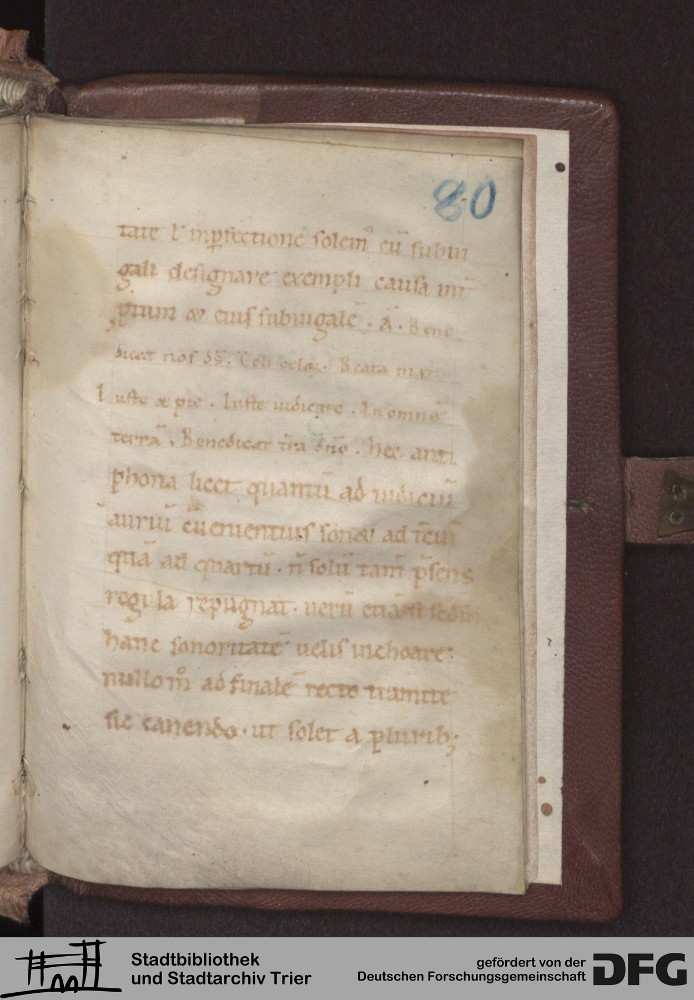 80
tate ł inp̱fectione solem᷒ cū subiu
gali designare exempli causa int̄
ptum & eius subiugale . A . Bene
dicat nos ds̄ . Celi celoꝝ . Beata
Iuste & pie . Iuste iudicate . In omnē
terrā . Benedicat t̄ra dn̄o . Hec anti
phona licet quantū ad iudiciū
auriū c̄uenientius sonet ad t̄ciū
quā ad quartū . n̄ solū tam̄ p̄sens
regula repugnat . uerū etiā si sedm̄
hanc sonoritatē uelis inchoare;
nullo m̊ ad finalē recto tramite
sic canendo . ut solet a plurib;
Stadtbibliothek
und Stadtarchiv Trier
gefördert von der
Deutschen Forschungsgemeinschaft
DFG